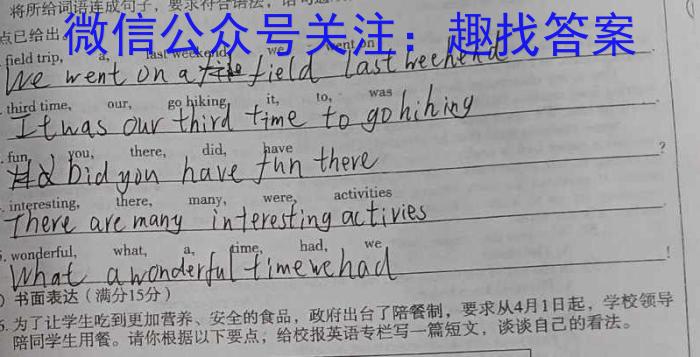 将所给词语连成句子，要求符合语法，语句通
点已给出。
微信公众号关注：趣找答案
field trip, a, last weekend, we, went on
We went on a field last weehend
third time, our, go hiking, it, to, was
It was our third time to go hihing
fun, you, there, did, have
Did you have fun there ?
interesting, there, many, were, activities
There are many interesting activies
5. wonderful, what, a, time, had, we
What a wonderful time we had !
）书面表达（满分15分）
6. 为了让学生吃到更加营养、安全的食品，政府出台了陪餐制，要求从4月1日起，学校领导
陪同学生用餐。请你根据以下要点，给校报英语专栏写一篇短文，谈谈自己的看法。